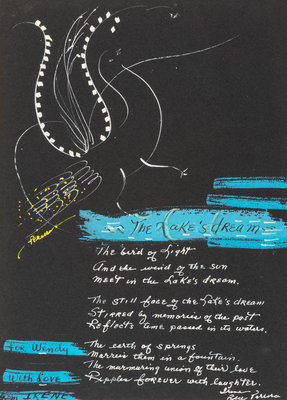 The Lake's dream
The bird of Light
And the weird of the sun
meet in the Lake's dream.
The still face of the Lake's dream
Stirred by memories of the past
Reflects time passed in its waters.
The earth of springs
Marries them in a fountain.
The murmuring union of their love
Ripples forever with laughter.
For Wendy
With Love
From IRENE
Irene